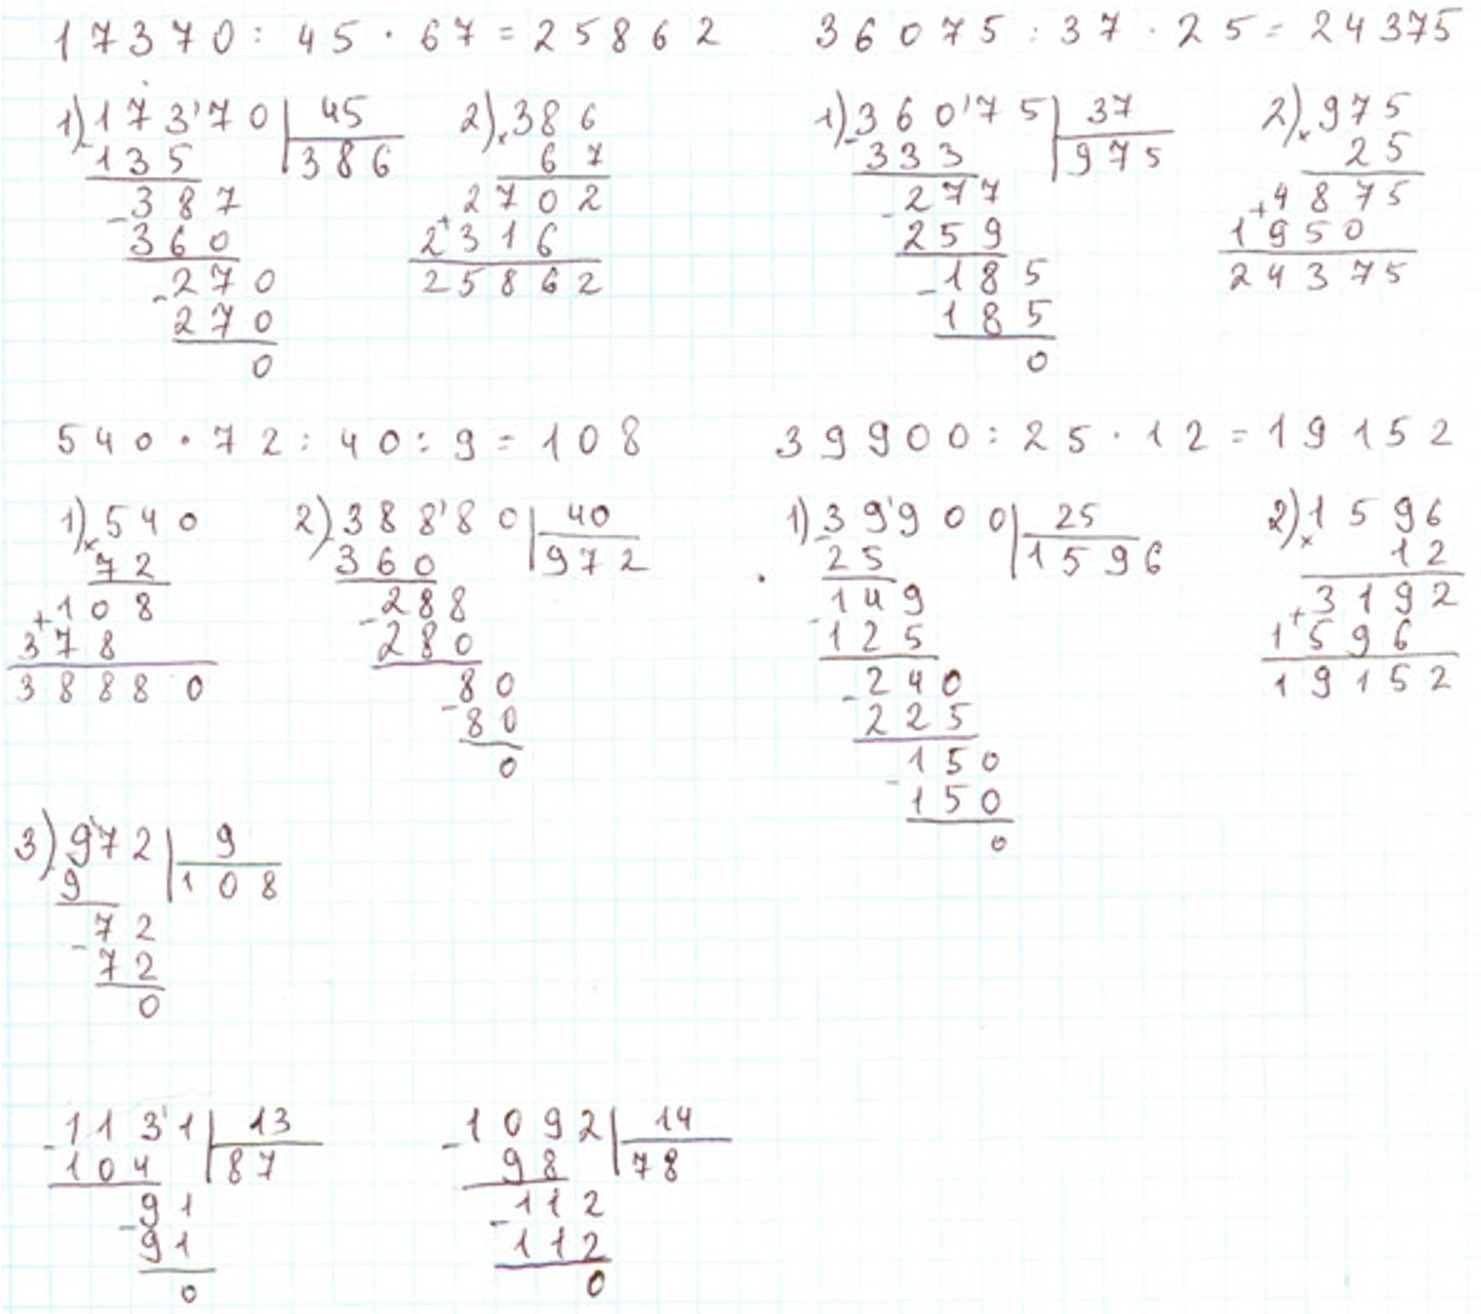 17370 : 45 · 67 = 25862
1) 173'70 | 45
135 | 386
387
360
270
270
0
2) × 386
67
2702
+ 2316
25862
36075 : 37 · 25 = 24375
1) 360'75 | 37
333 | 975
277
259
185
185
0
2) × 975
25
4875
+ 1950
24375
540 · 72 : 40 : 9 = 108
1) × 540
72
+ 108
378
38880
2) 388'80 | 40
360 | 972
288
280
80
80
0
3) 9'72 | 9
9 | 108
72
72
0
39900 : 25 · 12 = 19152
1) 39'900 | 25
25 | 1596
149
125
240
225
150
150
0
2) × 1596
12
3192
+ 1596
19152
113'1 | 13
104 | 87
91
91
0
1092 | 14
98 | 78
112
112
0